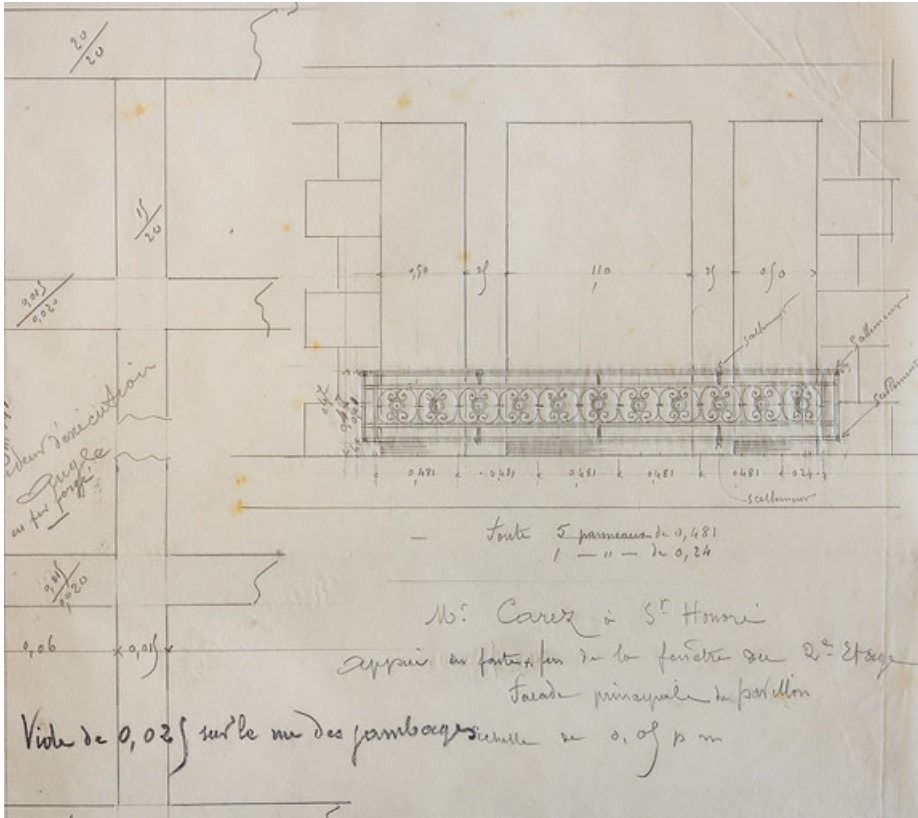 20/20
15/20
0,015/0,020
d'exécution
Angle
en fer forgé
0,015/0,020
0,06 0,015
0,50 25 1,10 25 0,50
scellement
Scellement
scellement
0,481 0,481 0,481 0,481 0,481 0,24
scellement
— Fonte 5 panneaux de 0,481
1 — " — de 0,24
Mr. Carez à St Honoré
appui en fonte & fers de la fenêtre au 2e Etage
Facade principale du pavillon
Vide de 0,025 sur le nu des jambages
echelle de 0,05 p m